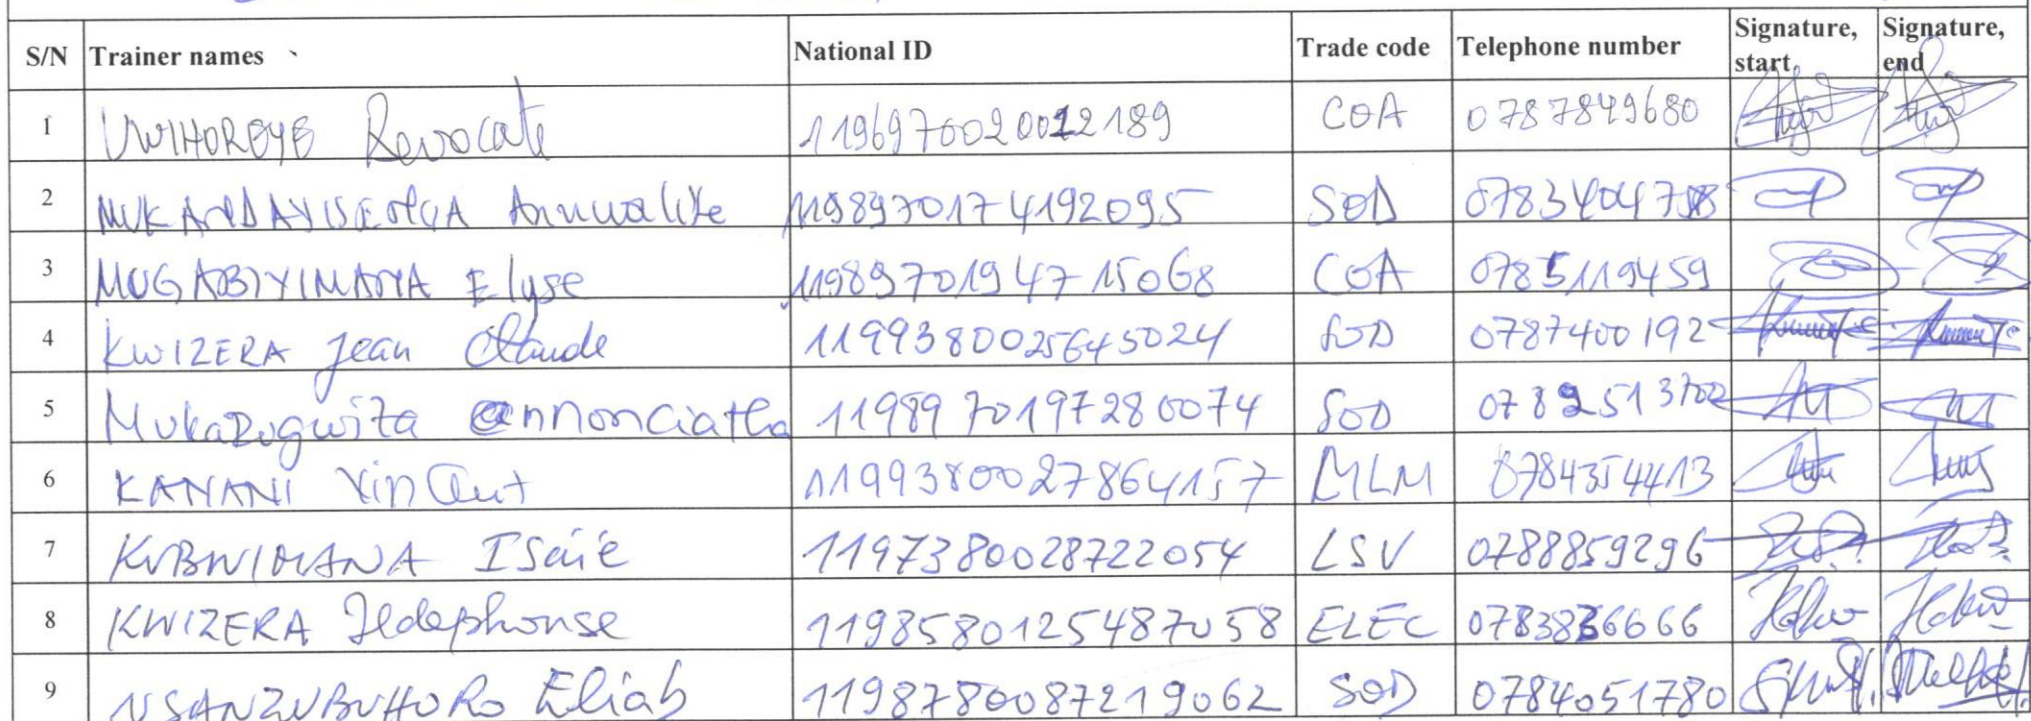 S/N Trainer names National ID Trade code Telephone number Signature, start Signature, end
1 UWIHOREYE Revocate 1196970020012189 COA 0787849680
2 MUKANDAYISENGA Annualite 1198970174192095 SOD
3 MUGABIYIMANA Elyse 1198970194715068 COA 0785119459
4 KWIZERA Jean Claude 1199380025645024 SOD 0787400192
5 Mukazugwiza annonciatha 1198970197280074 SOD 0782513702
6 KANANI Vincent 1199380027864157 MLM 0784354413
7 KUBWIMANA Isaie 1197380028722054 LSV 0788859296
8 KWIZERA Ildephonse 1198580125487058 ELEC 0783836666
9 NSANZUBUHORO Eliab 1198780087219062 SOD 0784051780